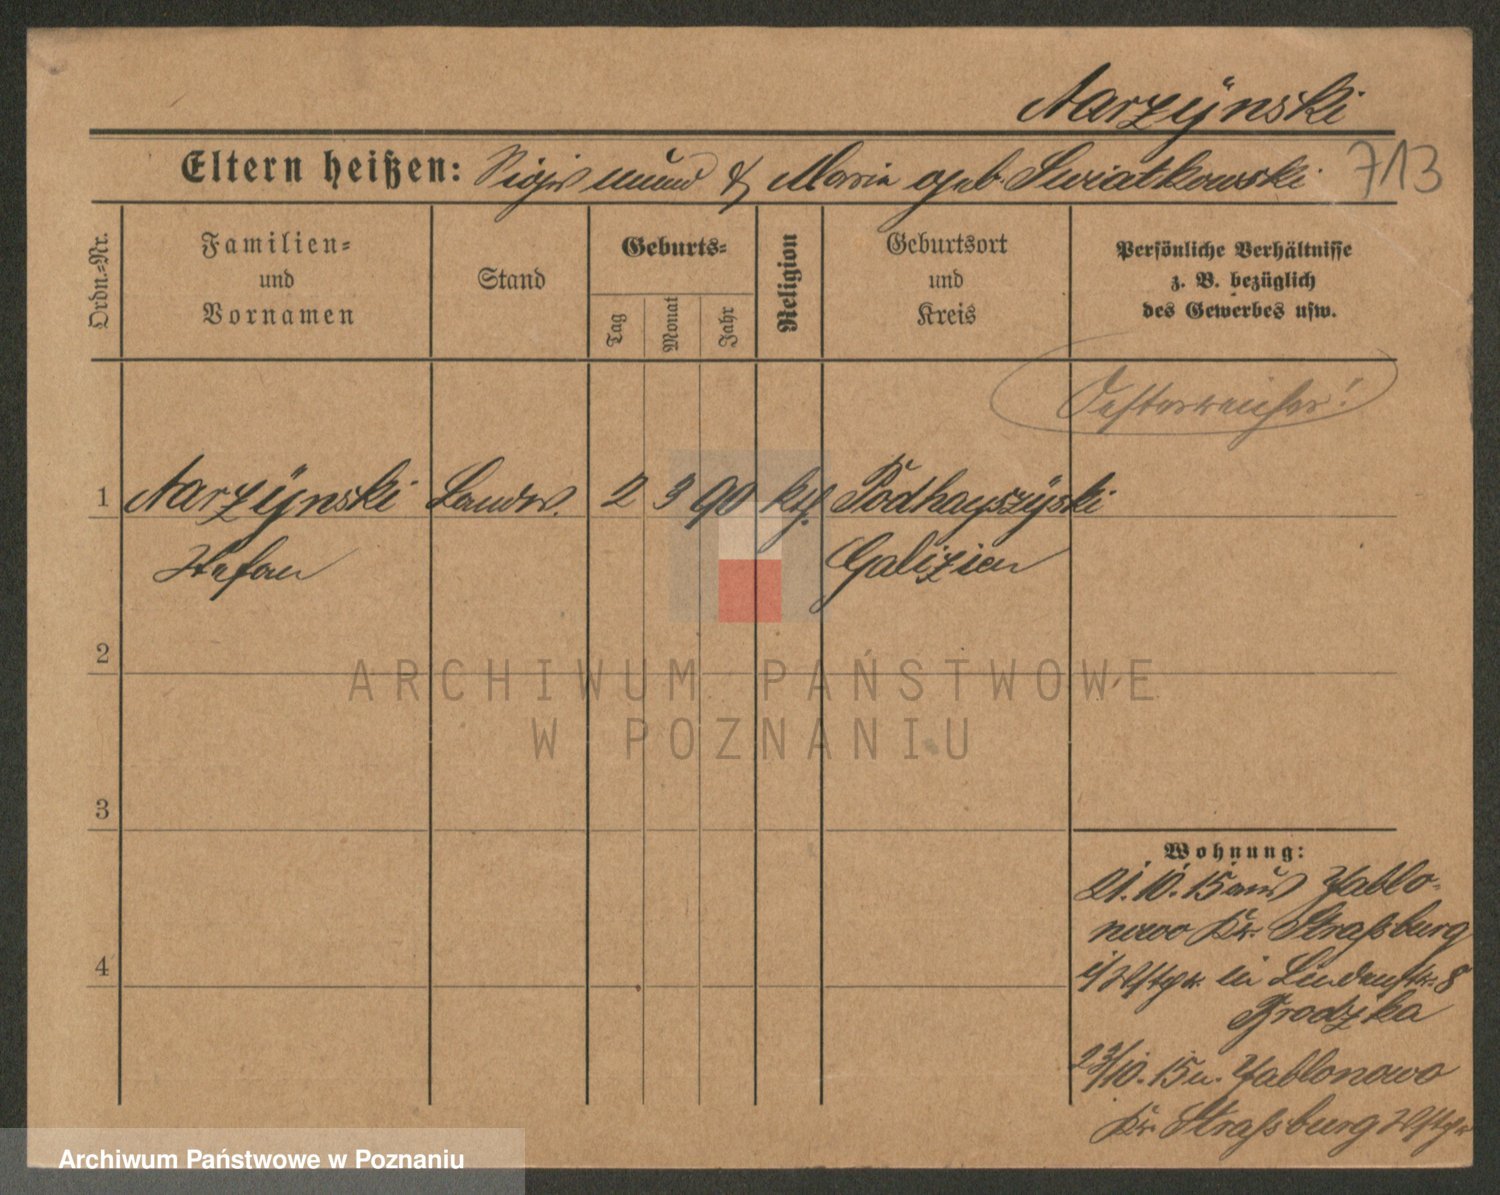 Narzÿnski
Eltern heißen: Sigismund & Maria geb. Swiatkowski 713
Ordn.-Nr.
Familien-
und
Vornamen
Stand
Geburts-
Tag
Monat
Jahr
Religion
Geburtsort
und
Kreis
Persönliche Verhältnisse
z. B. bezüglich
des Gewerbes usw.
Oesterreicher!
1 Narzÿnski Landw. 2 3 90 kth. Podhayszÿski
Stefan Galizien
2
3
4
Wohnung:
21.10.15 aus Jablo-
nowo Kr. Straßburg
i/Wstpr. in Lindenstr. 8
Brodzka
23/10.15 n. Jablonowo
Kr. Straßburg Wstpr
ARCHIWUM PAŃSTWOWE
W POZNANIU
Archiwum Państwowe w Poznaniu